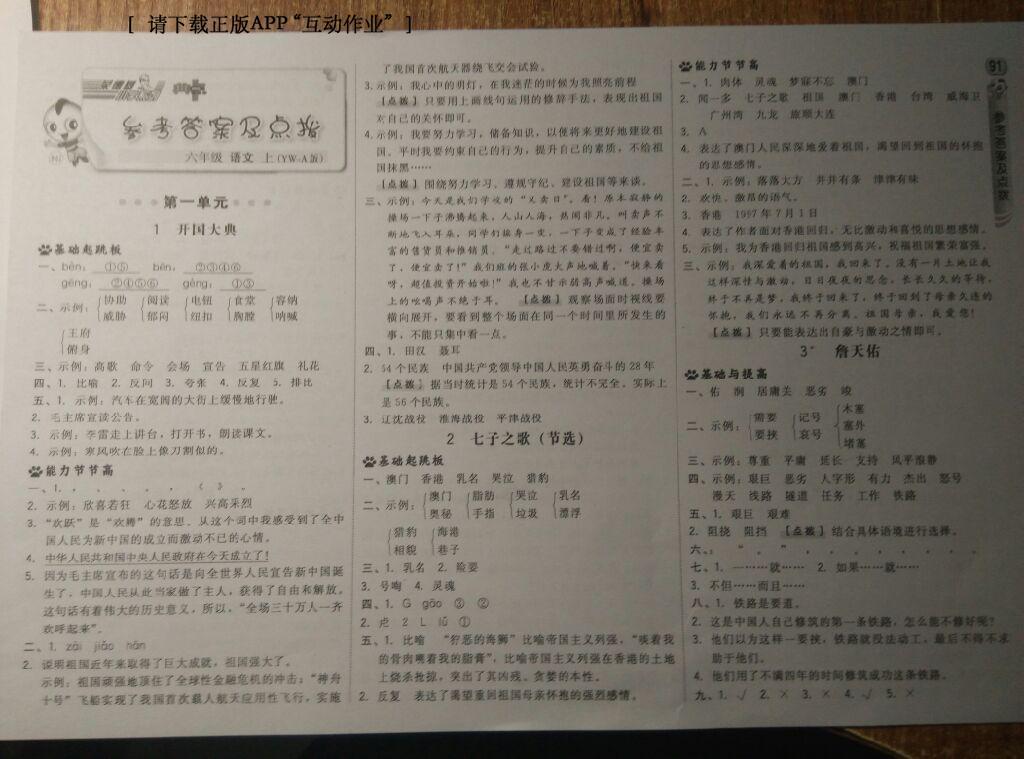 [ 请下载正版APP“互动作业” ]
参考答案及点拨
六年级 语文 上(YW-A版)
第一单元
1 开国大典
基础起跳板
一、bēn: ①⑤ bèn: ②③④⑥
gēng: ②④⑤⑥ gèng: ①③
二、示例: 协助 阅读 电钮 食堂 容纳
威胁 郁闷 纽扣 胸膛 呐喊
王府
俯身
三、示例: 高歌 命令 会场 宣告 五星红旗 礼花
四、1. 比喻 2. 反问 3. 夸张 4. 反复 5. 排比
五、1. 示例: 汽车在宽阔的大街上缓慢地行驶。
2. 毛主席宣读公告。
3. 示例: 李雷走上讲台，打开书，朗读课文。
4. 示例: 寒风吹在脸上像刀割似的。
能力节节高
一、1. ， 、 。 ， 、 《 》 。
2. 示例: 欣喜若狂 心花怒放 兴高采烈
3. “欢跃”是“欢腾”的意思。从这个词中我感受到了全中
国人民为新中国的成立而激动不已的心情。
4. 中华人民共和国中央人民政府在今天成立了!
5. 因为毛主席宣布的这句话是向全世界人民宣告新中国诞
生了，中国人民从此当家做了主人，获得了自由和解放。
这句话有着伟大的历史意义，所以，“全场三十万人一齐
欢呼起来”。
二、1. zāi jiāo hān
2. 说明祖国近年来取得了巨大成就，祖国强大了。
示例: 祖国顽强地顶住了全球性金融危机的冲击; “神舟
十号”飞船实现了我国首次载人航天应用性飞行，实施
了我国首次航天器绕飞交会试验。
3. 示例: 我心中的勇灯，在我迷茫的时候为我照亮前程
【点拨】只要用上画线句运用的修辞手法，表现出祖国
对自己的关怀即可。
4. 示例: 我要努力学习，储备知识，以便将来更好地建设祖
国。平时我要约束自己的行为，提升自己的素质，不给祖
国抹黑……
【点拨】围绕努力学习、遵规守纪、建设祖国等来谈。
三、示例: 今天是我们学校的“义卖日”。看! 原本寂静的
操场一下子沸腾起来，人山人海，热闹非凡。叫卖声不
断地飞入耳朵，同学们摇身一变，一下子变成了经验丰
富的售货员和推销员。“走过路过不要错过啊，便宜卖
了，便宜卖了!”我们班的张小虎大声地喊着。“快来看
呀，超值投资开始啦!”我也不甘示弱高声喊道。操场
上的吆喝声不绝于耳。 【点拨】观察场面时视线要
横向展开，要看到整个场面在同一个时间里所发生的
事，不能只集中看一点。
四、1. 田汉 聂耳
2. 54个民族 中国共产党领导中国人民英勇奋斗的28年
【点拨】据当时统计是54个民族，统计不完全。实际上
是56个民族。
3. 辽沈战役 淮海战役 平津战役
2 七子之歌(节选)
基础起跳板
一、澳门 香港 乳名 哭泣 猎豹
二、示例: 澳门 脂肪 哭泣 乳名
奥秘 手指 垃圾 漂浮
猎豹 海港
相貌 巷子
三、1. 乳名 2. 险要
3. 号啕 4. 灵魂
四、1. G gāo ③ ②
2. 虍 2 L lǔ ①
五、1. 比喻 “狞恶的海狮”比喻帝国主义列强，“啖着我
的骨肉咽着我的脂膏”，比喻帝国主义列强在香港的土地
上烧杀抢掠，突出了其凶残、贪婪的本性。
2. 反复 表达了渴望重回祖国母亲怀抱的强烈感情。
能力节节高
一、1. 肉体 灵魂 梦寐不忘 澳门
2. 闻一多 七子之歌 祖国 澳门 香港 台湾 威海卫
广州湾 九龙 旅顺大连
3. A
4. 表达了澳门人民深深地爱着祖国，渴望回到祖国的怀抱
的思想感情。
二、1. 示例: 落落大方 井井有条 津津有味
2. 欢快、激昂的语气。
3. 香港 1997年7月1日
4. 表达了作者面对香港回归，无比激动和喜悦的思想感情。
5. 示例: 我为香港回归祖国感到高兴，祝福祖国繁荣富强。
三、示例: 我深爱着的祖国，我回来了。没有一片土地让我
这样深情与激动，日日夜夜的思念，长长久久的等待，
终于不再是梦，我终于回来了，终于回到了母亲久违的
怀抱，我们永远不再分离。祖国母亲，我爱您!
【点拨】只要能表达出自豪与激动之情即可。
3* 詹天佑
基础与提高
一、佑 涧 居庸关 恶劣 竣
二、示例: 需要 记号 木塞
要挟 哀号 塞外
堵塞
三、示例: 尊重 平庸 延长 支持 风平浪静
四、示例: 艰巨 恶劣 人字形 有力 杰出 怒号
漫天 线路 隧道 任务 工作 铁路
五、1. 艰巨 艰难
2. 阻挠 阻挡 【点拨】结合具体语境进行选择。
六、
七、1. 一………就…… 2. 如果……就……
3. 不但……而且……
八、1. 铁路是要道。
2. 这是中国人自己修筑的第一条铁路，怎么能不修好呢?
3. 他们以为这样一要挟，铁路就没法动工，最后不得不求
助于他们。
4. 他们用了不满四年的时间修筑成功这条铁路。
九、1. √ 2. × 3. × 4. √ 5. ×
91
参考答案及点拨